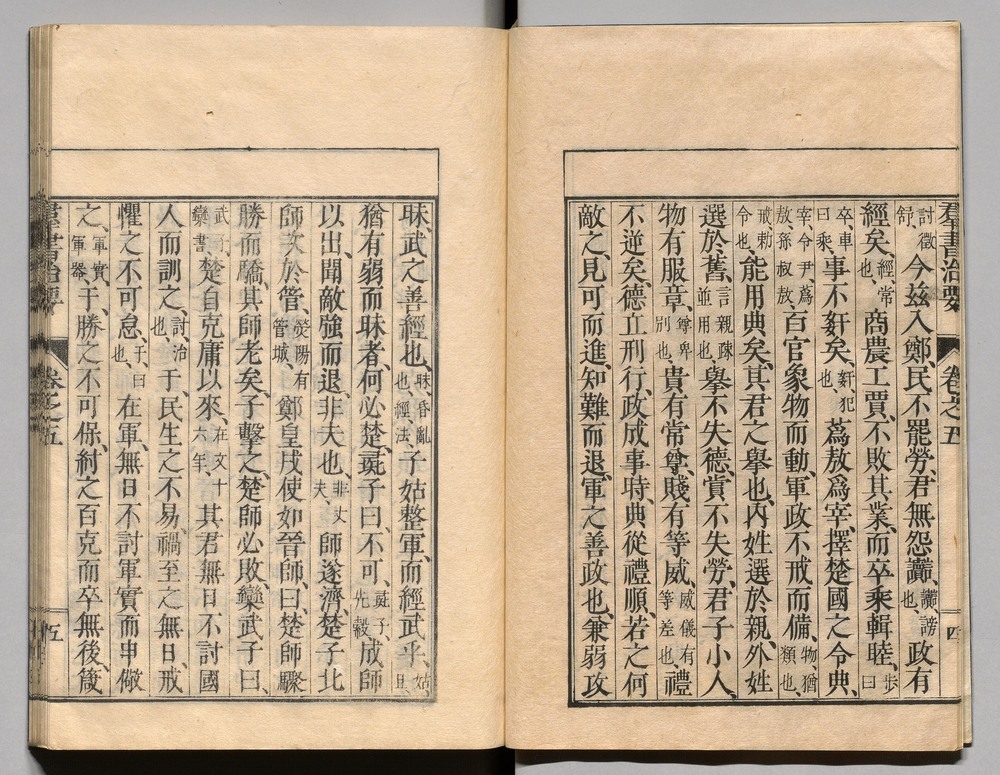 羣書治要 卷之五 四
討徵舒、今茲入鄭、民不罷勞、君無怨讟、讟謗也、政有
經矣、經常也、商農工賈、不敗其業、而卒乘輯睦、步曰
卒、車曰乘、事不奸矣、奸犯也、蔿敖爲宰、擇楚國之令典、
宰、令尹、蔿敖、孫叔敖、百官象物而動、軍政不戒而備、物猶類也、
戒勑令也、能用典矣、其君之舉也、內姓選於親、外姓
選於舊、言親疎並用也、舉不失德、賞不失勞、君子小人、
物有服章、尊卑別也、貴有常尊、賤有等威、威儀有等差也、禮
不逆矣、德立刑行、政成事時、典從禮順、若之何
敵之、見可而進、知難而退、軍之善政也、兼弱攻
昧、武之善經也、昧、昏亂也、經、法也、子姑整軍、而經武乎、姑、且、
猶有弱而昧者、何必楚、彘子曰、不可、彘子、先縠、成師
以出、聞敵強而退、非夫也、非丈夫、師遂濟、楚子北
師次於管、熒陽有管城、鄭皇戌使如晉師、曰、楚師驟
勝而驕、其師老矣、子擊之、楚師必敗、欒武子曰、
武子、欒書、楚自克庸以來、在文十六年、其君無日不討國
人而訓之、討、治也、于民生之不易、禍至之無日、戒
懼之不可怠、于、曰也、在軍、無日不討軍實而申儆
之、軍實、軍器、于勝之不可保、紂之百克而卒無後、箴
羣書治要 卷之五 五